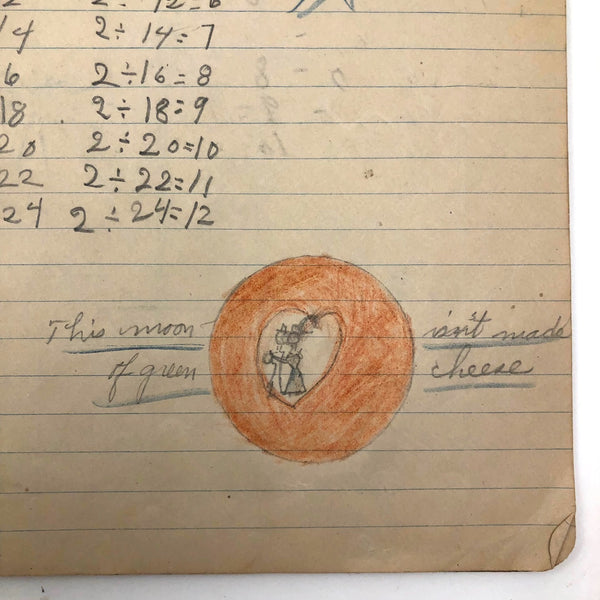 2 ÷ 12=6
14 2÷ 14=7
6 2÷16=8
18 2÷ 18=9
20 2÷ 20=10
22 2÷ 22=11
24 2 ÷ 24=12
This moon isn't made
of green cheese